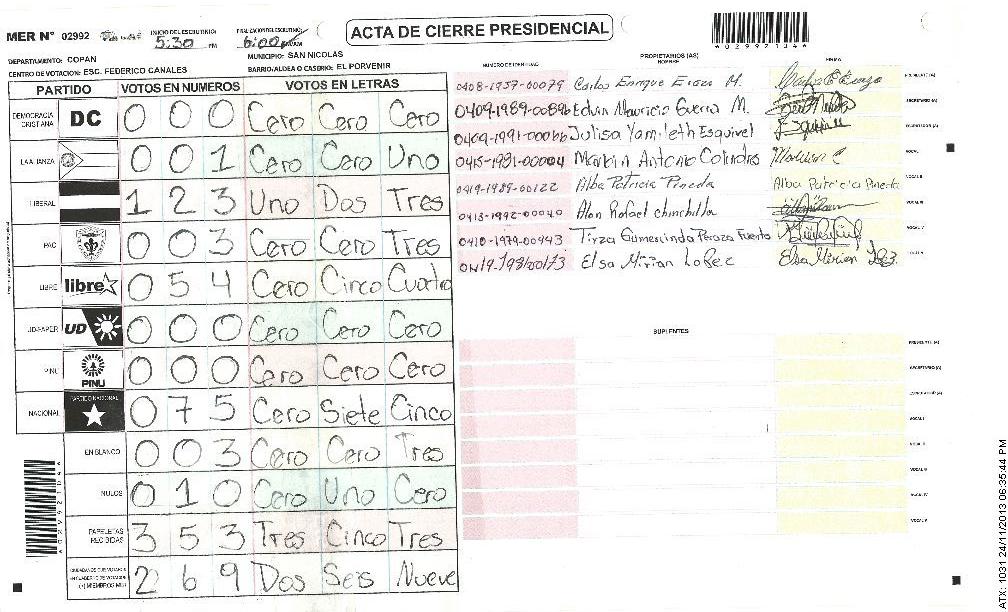 MER N° 02992
INICIO DEL ESCRUTINIO: 5:30 PM
FINALIZACION DEL ESCRUTINIO: 6:00 PM
ACTA DE CIERRE PRESIDENCIAL
A02992104A
DEPARTAMENTO: COPAN
MUNICIPIO: SAN NICOLAS
CENTRO DE VOTACION: ESC. FEDERICO CANALES
BARRIO/ALDEA O CASERIO: EL PORVENIR
PARTIDO VOTOS EN NUMEROS VOTOS EN LETRAS
DEMOCRACIA CRISTIANA DC 0 0 0 Cero Cero Cero
LA ALIANZA 0 0 1 Cero Cero Uno
LIBERAL 1 2 3 Uno Dos Tres
PAC 0 0 3 Cero Cero Tres
LIBRE libre 0 5 4 Cero Cinco Cuatro
UD-FAPER UD 0 0 0 Cero Cero Cero
PINU PINU 0 0 0 Cero Cero Cero
NACIONAL PARTIDO NACIONAL 0 7 5 Cero Siete Cinco
EN BLANCO 0 0 3 Cero Cero Tres
NULOS 0 1 0 Cero Uno Cero
PAPELETAS RECIBIDAS 3 5 3 Tres Cinco Tres
2 6 9 Dos Seis Nueve
PROPIETARIOS (AS)
NUMERO DE IDENTIDAD NOMBRE FIRMA
0408-1957-00079 Carlos Enrique Erazo M. PRESIDENTE (A)
0409-1989-00896 Edvin Mauricio Guerra M. SECRETARIO (A)
0409-1991-00066 Julisa Yamileth Esquivel Esquivel ESCRUTADOR (A)
0415-1981-00004 Marbin Antonio Colindres VOCAL I
0419-1989-00122 Alba Patricia Pineda Alba Patricia Pineda VOCAL II
0413-1992-00040 Alan Rafael chinchilla VOCAL III
0410-1979-00443 Tirza Gumercinda Peraza Fuerto VOCAL IV
Elsa Mirian Lopez Elsa Mirian VOCAL V
SUPLENTES
PRESIDENTE (A)
SECRETARIO (A)
ESCRUTADOR (A)
VOCAL I
VOCAL II
VOCAL III
VOCAL IV
VOCAL V
ATX: 1031 24/11/2013 06:35:44 PM